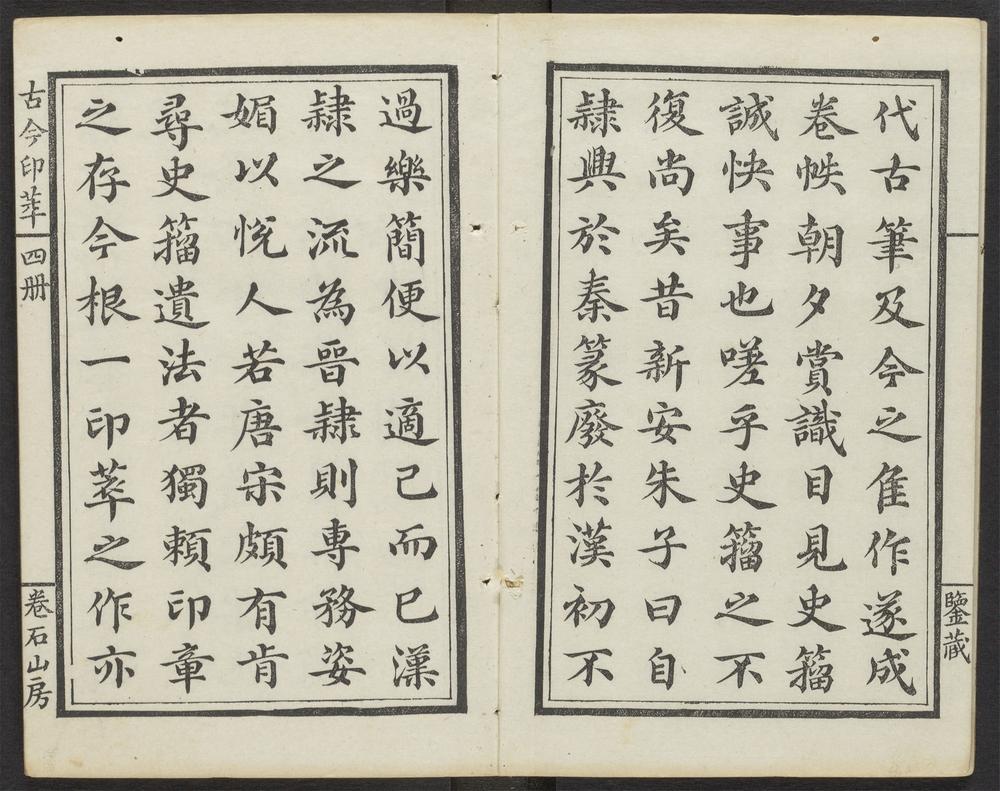 代古筆及今之隹作遂成
卷帙朝夕賞識目見史籀
誠快事也嗟乎史籀之不
復尚矣昔新安朱子曰自
隸興於秦篆廢於漢初不
過樂簡便以適己而已漢
隸之流為晉隸則專務姿
媚以悅人若唐宋頗有肯
尋史籀遺法者獨賴印章
之存今根一印萃之作亦
鑒藏
古今印萃
四冊
卷石山房